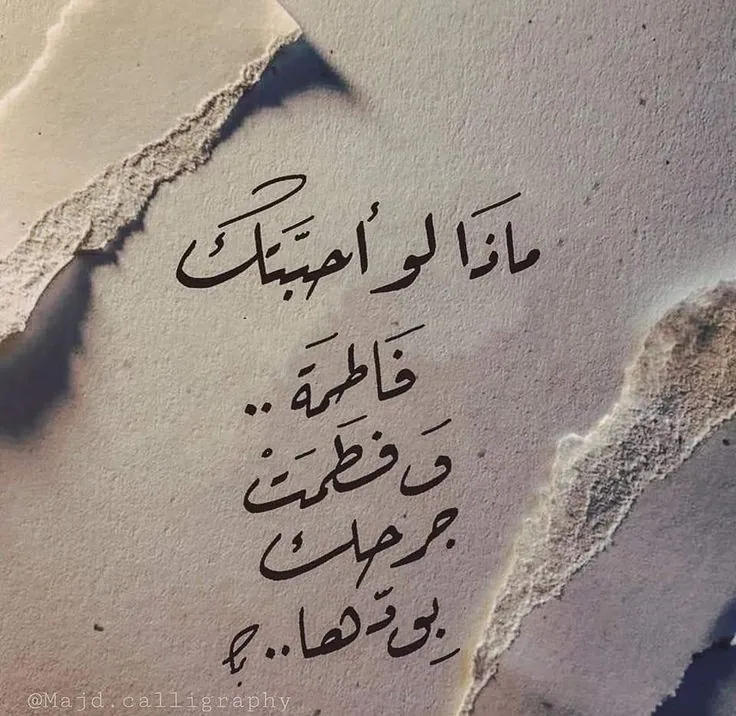 ماذَا لو أحبَّتَك
فَاطمَة ..
وَ فطَمَتْ
جرحك
بِودّها..
@Majd.calligraphy